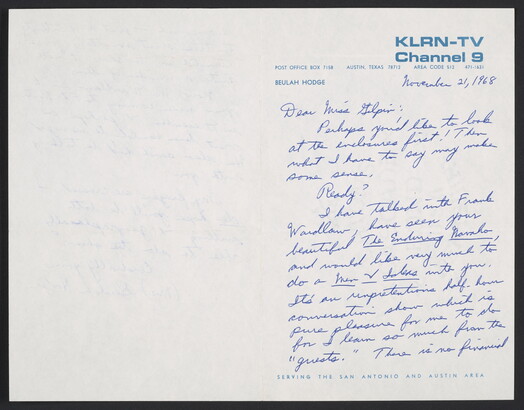 KLRN-TV
Channel 9
POST OFFICE BOX 7158 AUSTIN, TEXAS 78712 AREA CODE 512 471-1631
BEULAH HODGE
November 21, 1968
Dear Miss Gilpin:
Perhaps you'd like to look
at the enclosures first! Then
what I have to say may make
some sense.
Ready?
I have talked with Frank
Wardlaw, have seen your
beautiful The Enduring Navaho,
and would like very much to
do a Men & Ideas with you.
It's an unpretentious half-hour
conversation show which is
pure pleasure for me to do
for I learn so much from the
"guests." There is no financial
SERVING THE SAN ANTONIO AND AUSTIN AREA